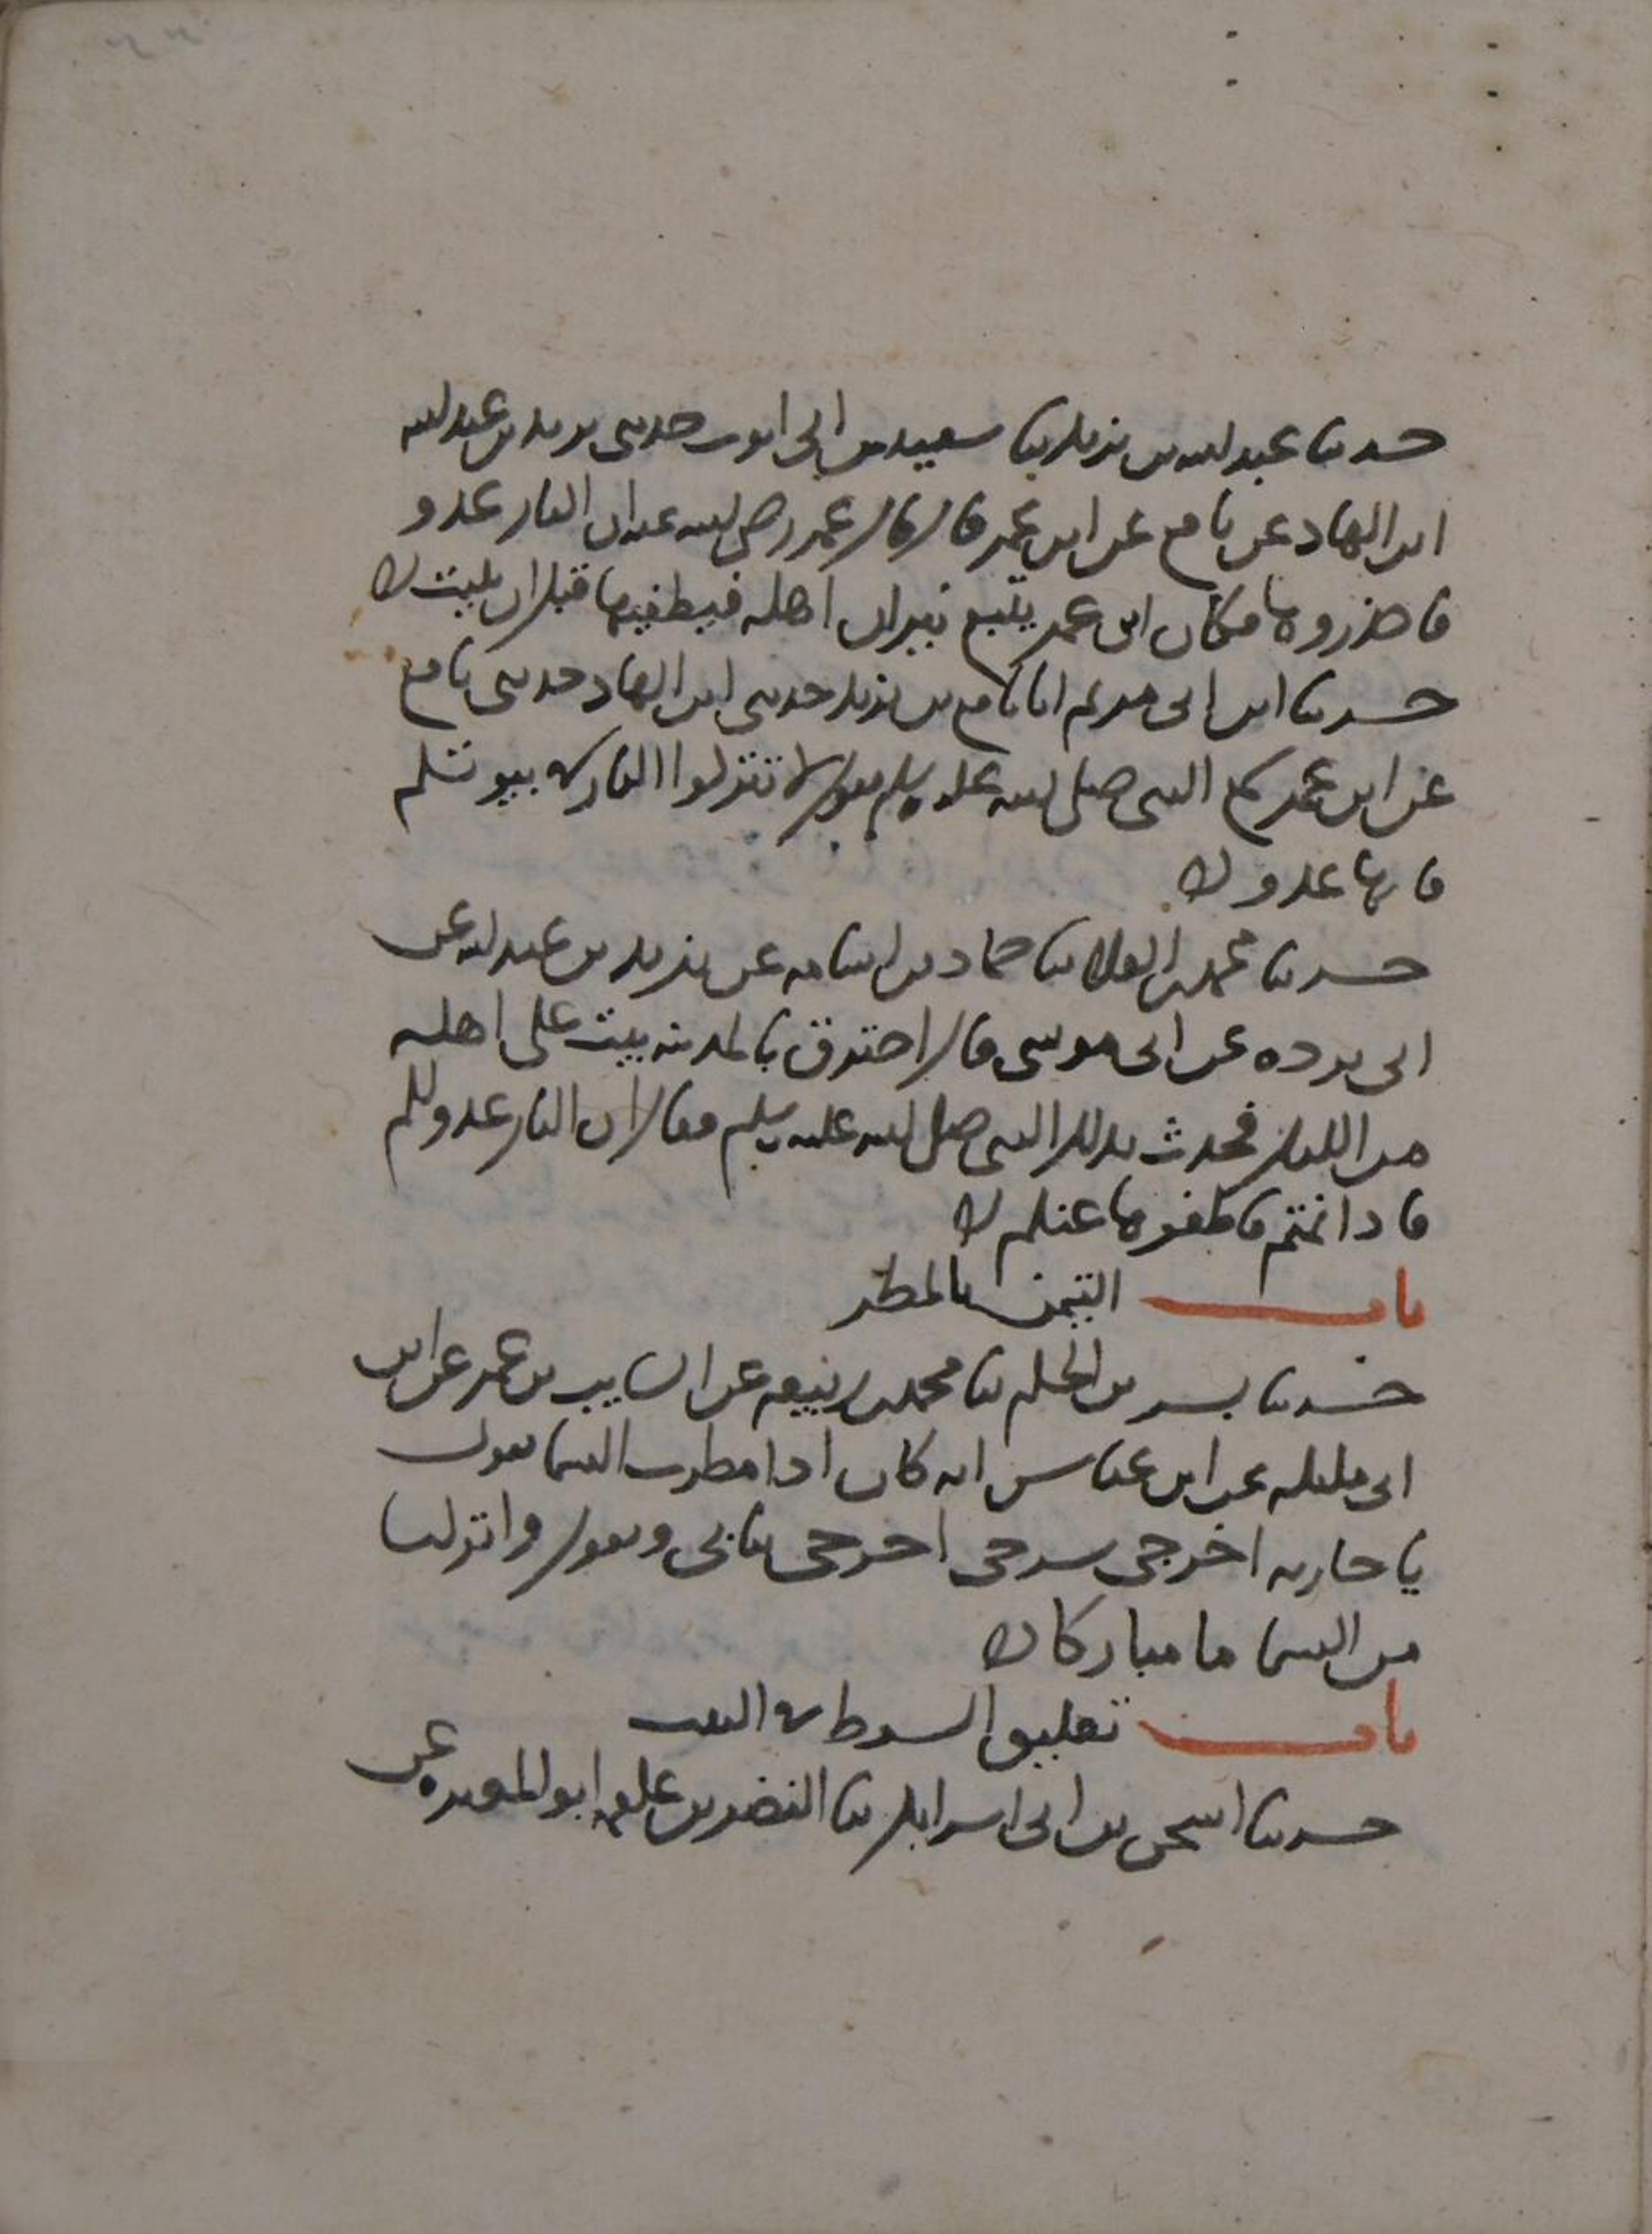 حدثنا عبد الله بن يزيد ثنا سعيد بن ابي ايوب حدثني يزيد بن عبد الله
ابن الهاد عن نافع عن ابن عمر قال قال عمر رضي الله عنه ان النار عدو
فاحذروها فكان ابن عمر يتبع نيران اهله فيطفيها قبل ان يبيت
حدثنا ابن ابي مريم انا نافع بن يزيد حدثني ابن الهاد حدثني نافع
عن ابن عمر سمع النبي صلى الله عليه وسلم يقول لا تتركوا النار في بيوتكم
فانها عدو
حدثنا محمد بن العلا ثنا حماد بن اسامه عن بريد بن عبد الله عن
ابي برده عن ابي موسى قال احترق بالمدينه بيت على اهله
من الليل فحدث بذلك النبي صلى الله عليه وسلم فقال ان النار عدو لكم
فاذا نمتم فاطفوها عنكم
باب التيمن بالمطر
حدثنا بشر بن الحكم ثنا محمد بن ربيعه عن السايب بن عمر عن ابن
ابي مليكه عن ابن عباس انه كان اذا مطرت السما يقول
يا جاريه اخرجي سرجي اخرجي ثيابي ويقول وانزلنا
من السما ما مباركا
باب تعليق السوط في البيت
حدثنا اسحق بن ابي اسرايل ثنا النضر بن علقمه ابو المغيره عن